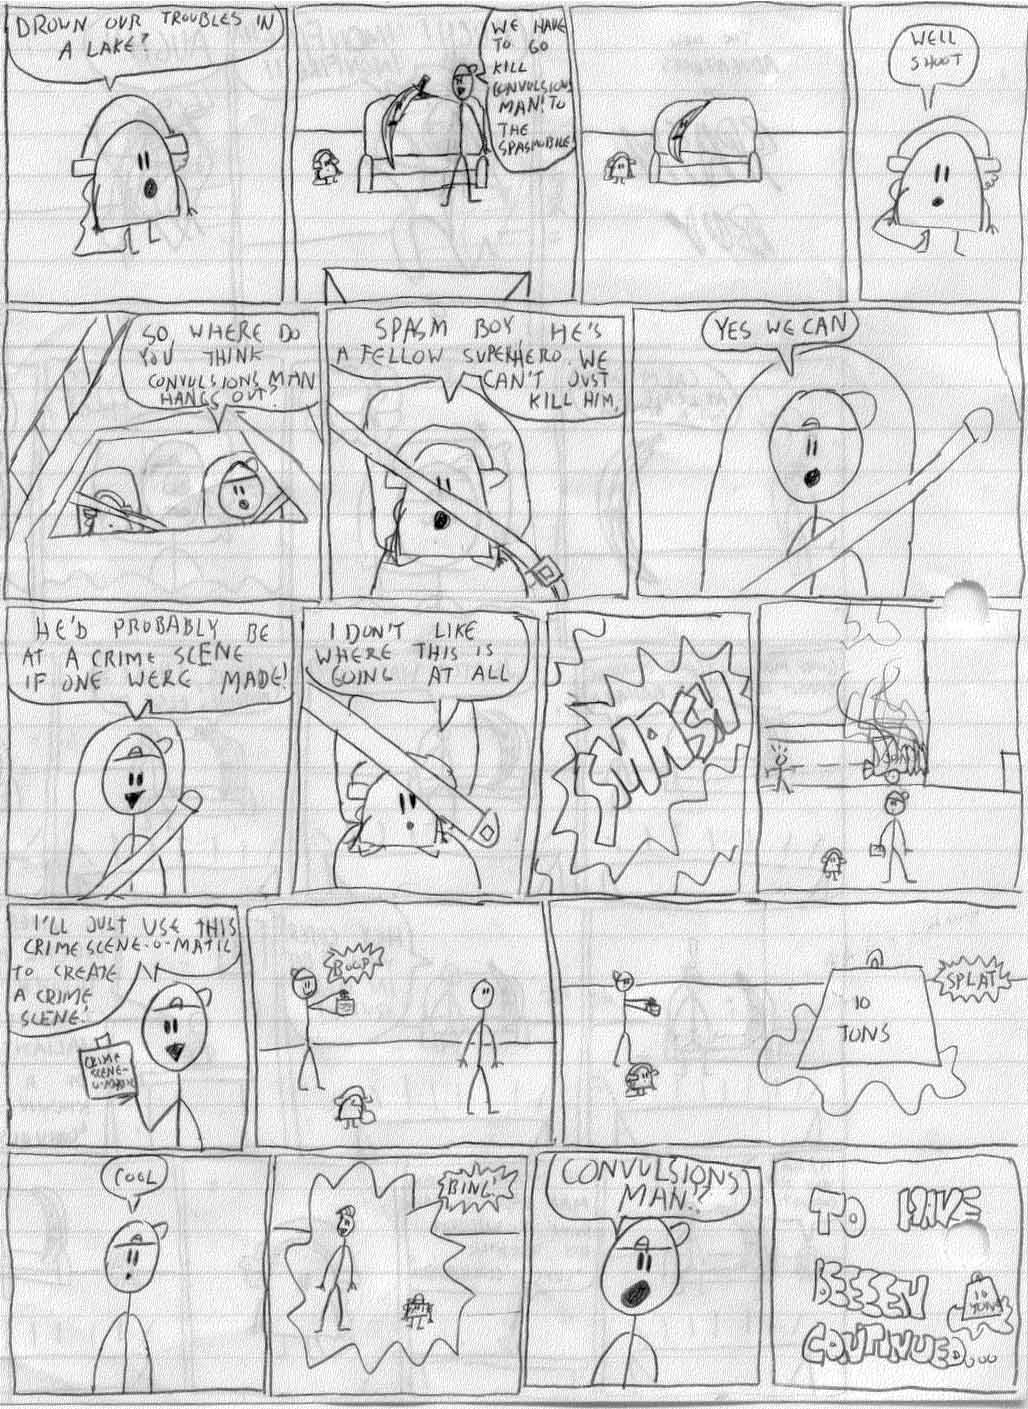 DROWN OUR TROUBLES IN
A LAKE?
WE HAVE
TO GO
KILL
CONVULSIONS
MAN! TO
THE
SPASMOBILE!
WELL
SHOOT
SO, WHERE DO
YOU THINK
CONVULSIONS MAN
HANGS OUT?
SPASM BOY, HE'S
A FELLOW SUPERHERO. WE
CAN'T JUST
KILL HIM.
YES WE CAN
HE'D PROBABLY BE
AT A CRIME SCENE
IF ONE WERE MADE!
I DON'T LIKE
WHERE THIS IS
GOING AT ALL
SMASH
I'LL JUST USE THIS
CRIME SCENE-O-MATIC
TO CREATE
A CRIME
SCENE!
CRIME
SCENE-
O-MATIC
BOOP
10
TONS
SPLAT
COOL
BING!
CONVULSIONS
MAN!?
TO HAVE
BEEEEN
CONTINUED...
10
TONS